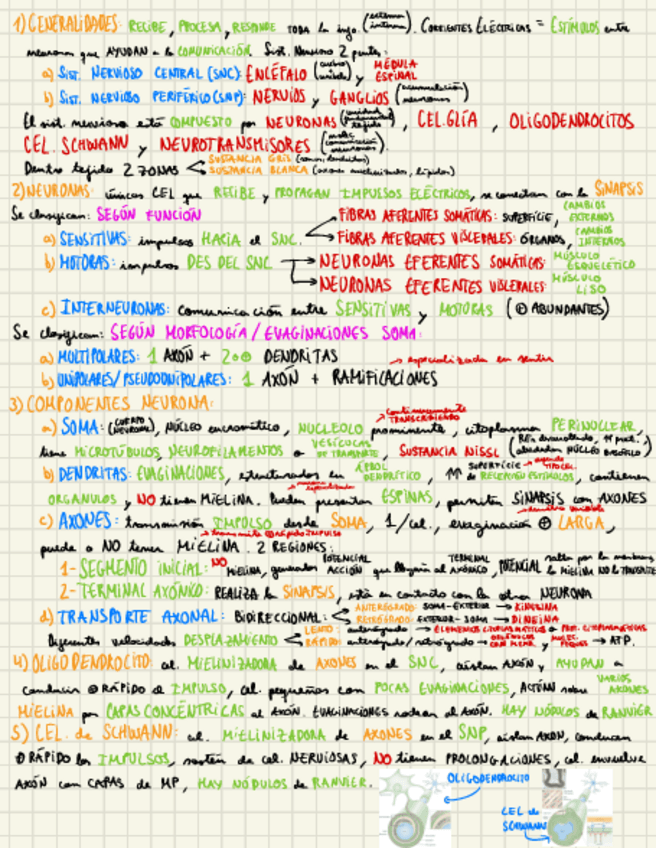 1) GENERALIDADES: RECIBE, PROCESA, RESPONDE TODA la info. (externa interna). CORRIENTES ELÉCTRICAS = ESTÍMULOS entre
neuronas que AYUDAN a la COMUNICACIÓN. Sist. Nervioso 2 partes:
a) SIST. NERVIOSO CENTRAL (SNC): ENCÉFALO y MÉDULA ESPINAL
b) SIST. NERVIOSO PERIFÉRICO (SNP): NERVIOS y GANGLIOS (acumulación neuronas)
El sist. nervioso está COMPUESTO por NEURONAS, CEL. GLÍA, OLIGODENDROCITOS
CEL. SCHWANN y NEUROTRANSMISORES
Dentro tejido 2 ZONAS SUSTANCIA GRIS (somas, dendritas)
SUSTANCIA BLANCA (axones mielinizados, lípidos)
2) NEURONAS: únicas CEL que RECIBE y PROPAGAN IMPULSOS ELÉCTRICOS, se conectan con la SINAPSIS
Se clasifican: SEGÚN FUNCIÓN
FIBRAS AFERENTES SOMÁTICAS: SUPERFICIE, CAMBIOS EXTERNOS
a) SENSITIVAS: impulsos HACIA el SNC. FIBRAS AFERENTES VISCERALES: ÓRGANOS, CAMBIOS INTERNOS
b) MOTORAS: impulsos DES DEL SNC NEURONAS EFERENTES SOMÁTICAS: MÚSCULO ESQUELÉTICO
NEURONAS EFERENTES VISCERALES: MÚSCULO LISO
c) INTERNEURONAS: comunicación entre SENSITIVAS y MOTORAS (⊕ ABUNDANTES)
Se clasifican: SEGÚN MORFOLOGÍA / EVAGINACIONES SOMA:
a) MULTIPOLARES: 1 AXÓN + 2 o ⊕ DENDRITAS
b) UNIPOLARES/PSEUDOUNIPOLARES: 1 AXÓN + RAMIFICACIONES → especializada en sentir
3) COMPONENTES NEURONA:
a) SOMA: (CUERPO NEURONA), NÚCLEO eucromático, NUCLEOLO prominente → continuamente TRANSCRIBIENDO, citoplasma PERINUCLEAR,
tiene MICROTÚBULOS, NEUROFILAMENTOS o VESÍCULAS DE TRANSPORTE, SUSTANCIA NISSL
b) DENDRITAS: EVAGINACIONES, estructuradas en ÁRBOL DENDRÍTICO, ↑↑ SUPERFICIE de RECEPCIÓN ESTÍMULOS, contienen
ORGANULOS y NO tienen MIELINA. Pueden presentar ESPINAS, permiten SINAPSIS con AXONES
c) AXONES: transmisión IMPULSO desde SOMA, 1/cel., evaginación ⊕ LARGA,
puede o NO tener MIELINA. 2 REGIONES:
1- SEGMENTO INICIAL: NO MIELINA, generador POTENCIAL ACCIÓN que llegarán al TERMINAL AXÓNICO, POTENCIAL salta por la membrana, la MIELINA NO lo TRANSMITE
2- TERMINAL AXÓNICO: REALIZA la SINAPSIS, está en contacto con la otra NEURONA
d) TRANSPORTE AXONAL: BIDIRECCIONAL: ANTERÓGRADO: SOMA-EXTERIOR → KINESINA
RETRÓGRADO: EXTERIOR-SOMA → DINEINA
Diferentes velocidades DESPLAZAMIENTO LENTO anterógrado → ELEMENTOS CITOESQUELÉTICOS o PROT. CITOPLASMÁTICAS
RÁPIDO: anterógrado/retrógrado → ORGÁNULOS CON MEMB. y MOLEC. PEQUES → ATP.
4) OLIGODENDROCITO: cel. MIELINIZADORA de AXONES en el SNC, aíslan AXÓN y AYUDAN a
conducir ⊕ RÁPIDO el IMPULSO, cel. pequeñas con POCAS EVAGINACIONES, ACTÚAN sobre VARIOS AXONES
MIELINA por CAPAS CONCÉNTRICAS al AXÓN. EVAGINACIONES rodean al AXÓN. HAY NÓDULOS de RANVIER
5) CEL. de SCHWANN: cel. MIELINIZADORA de AXONES en el SNP, aíslan AXÓN, conducen
⊕ RÁPIDO los IMPULSOS, sostén de cel. NERVIOSAS, NO tienen PROLONGACIONES, cel. envuelve
AXÓN con CAPAS de MP, HAY NÓDULOS de RANVIER.
OLIGODENDROCITO
CEL de SCHWANN